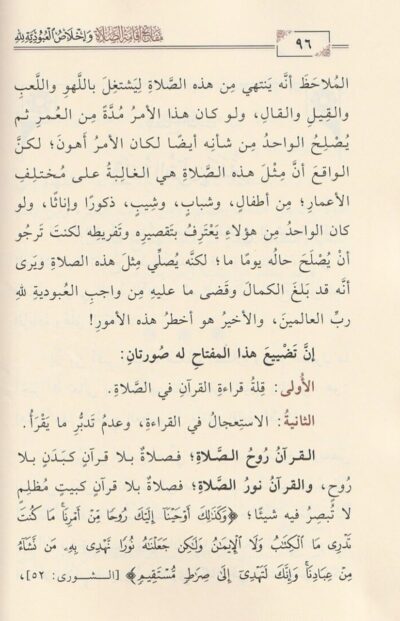 مفاتيح إقامة الصلاة وإخلاص العبودية لله
٩٦
المُلاحَظَ أنَّه يَنتهي مِن هذه الصَّلاةِ لِيَشتغلَ باللَّهوِ واللَّعبِ
والقِيلِ والقالِ، ولو كان هذا الأمرُ مُدَّةً مِن العُمرِ ثم
يُصْلِحُ الواحدُ مِن شأنِه أيضًا لكان الأمرُ أهونَ؛ لكنَّ
الواقعَ أنَّ مِثْلَ هذه الصَّلاةِ هي الغالِبةُ على مُختلِفِ
الأعمارِ؛ مِن أطفالٍ، وشبابٍ، وشِيبٍ، ذكورًا وإناثًا، ولو
كان الواحدُ مِن هؤلاءِ يَعْتَرِفُ بتقصيرِه وتَفريطِه لكنتَ تَرجُو
أنْ يُصْلَحَ حالُه يومًا ما؛ لكنَّه يُصلِّي مِثلَ هذه الصلاةِ ويَرى
أنَّه قد بَلغَ الكمالَ وقَضى ما عليهِ مِن واجبِ العُبوديةِ للهِ
ربِّ العالمينَ، والأخيرُ هو أخطرُ هذه الأمورِ!
إنَّ تَضْييعَ هذا المفتاحِ له صُورتانِ:
الأُولى: قِلةُ قراءةِ القرآنِ في الصَّلاةِ.
الثانيةُ: الاستِعجالُ في القراءةِ، وعدمُ تَدبُّرِ ما يَقْرَأُ.
القرآنُ رُوحُ الصَّلاةِ؛ فصلاةٌ بلا قرآنٍ كبَدَنٍ بلا
روحٍ، والقرآنُ نورُ الصَّلاةِ؛ فصلاةٌ بلا قرآنٍ كبيتٍ مُظلِمٍ
لا تُبصِرُ فيه شيئًا؛ ﴿وَكَذَٰلِكَ أَوْحَيْنَا إِلَيْكَ رُوحًا مِّنْ أَمْرِنَا مَا كُنتَ
تَدْرِى مَا ٱلْكِتَٰبُ وَلَا ٱلْإِيمَٰنُ وَلَٰكِن جَعَلْنَٰهُ نُورًا نَّهْدِى بِهِۦ مَن نَّشَآءُ
مِنْ عِبَادِنَا وَإِنَّكَ لَتَهْدِىٓ إِلَىٰ صِرَٰطٍ مُّسْتَقِيمٍ﴾ [الشورى: ٥٢]،